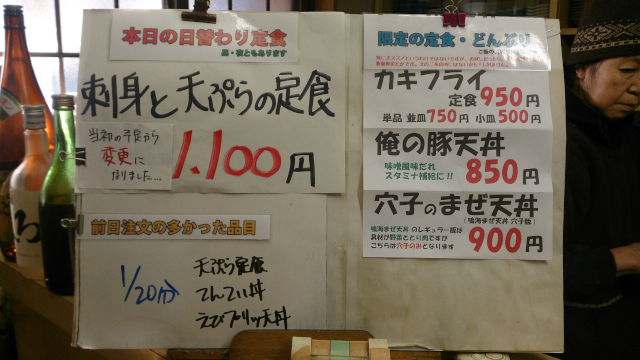 本日の日替わり定食
昼・夜ともあります
刺身と天ぷらの定食
当初の予定から
変更に
なりました…
1,100円
前日注文の多かった品目
1/20分
天ぷら定食
てんてい丼
えびブリッ天丼
限定の定食・どんぶり
カキフライ
定食 950円
単品 並皿 750円 小皿 500円
俺の豚天丼
味噌風味だれ
スタミナ補給に!!
850円
穴子のまぜ天丼
(鳴海まぜ天丼 穴子版)
鳴海まぜ天丼 のレギュラー版は
具材が野菜ととり肉ですが
こちらは穴子のみとなります
900円